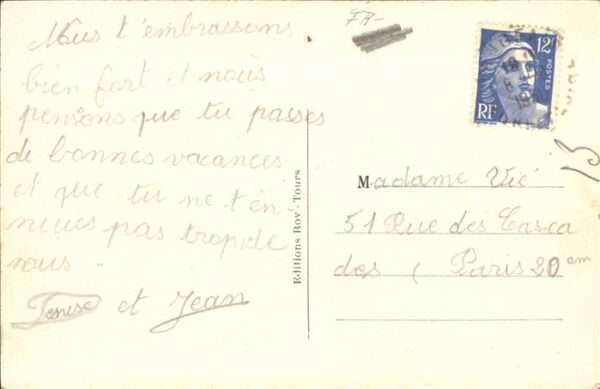 Nous t'embrassons
bien fort et nous
pensons que tu passes
de bonnes vacances
et que tu ne t'en
nuies pas trop de
nous.
Denise et Jean
Editions Roy - Tours
FR-
12F
POSTES
RF
13
Madame Vié
51 Rue des Casca
des (Paris 20em